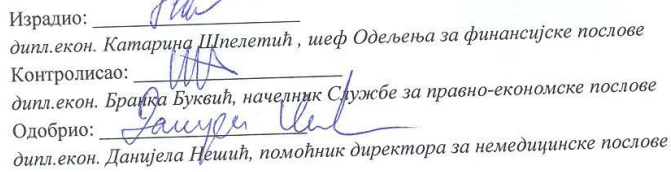 Израдио: ____________
дипл.екон. Катарина Шпелетић , шеф Одељења за финансијске послове
Контролисао: ____________
дипл.екон. Бранка Буквић, начелник Службе за правно-економске послове
Одобрио: ____________
дипл.екон. Данијела Нешић, помоћник директора за немедицинске послове